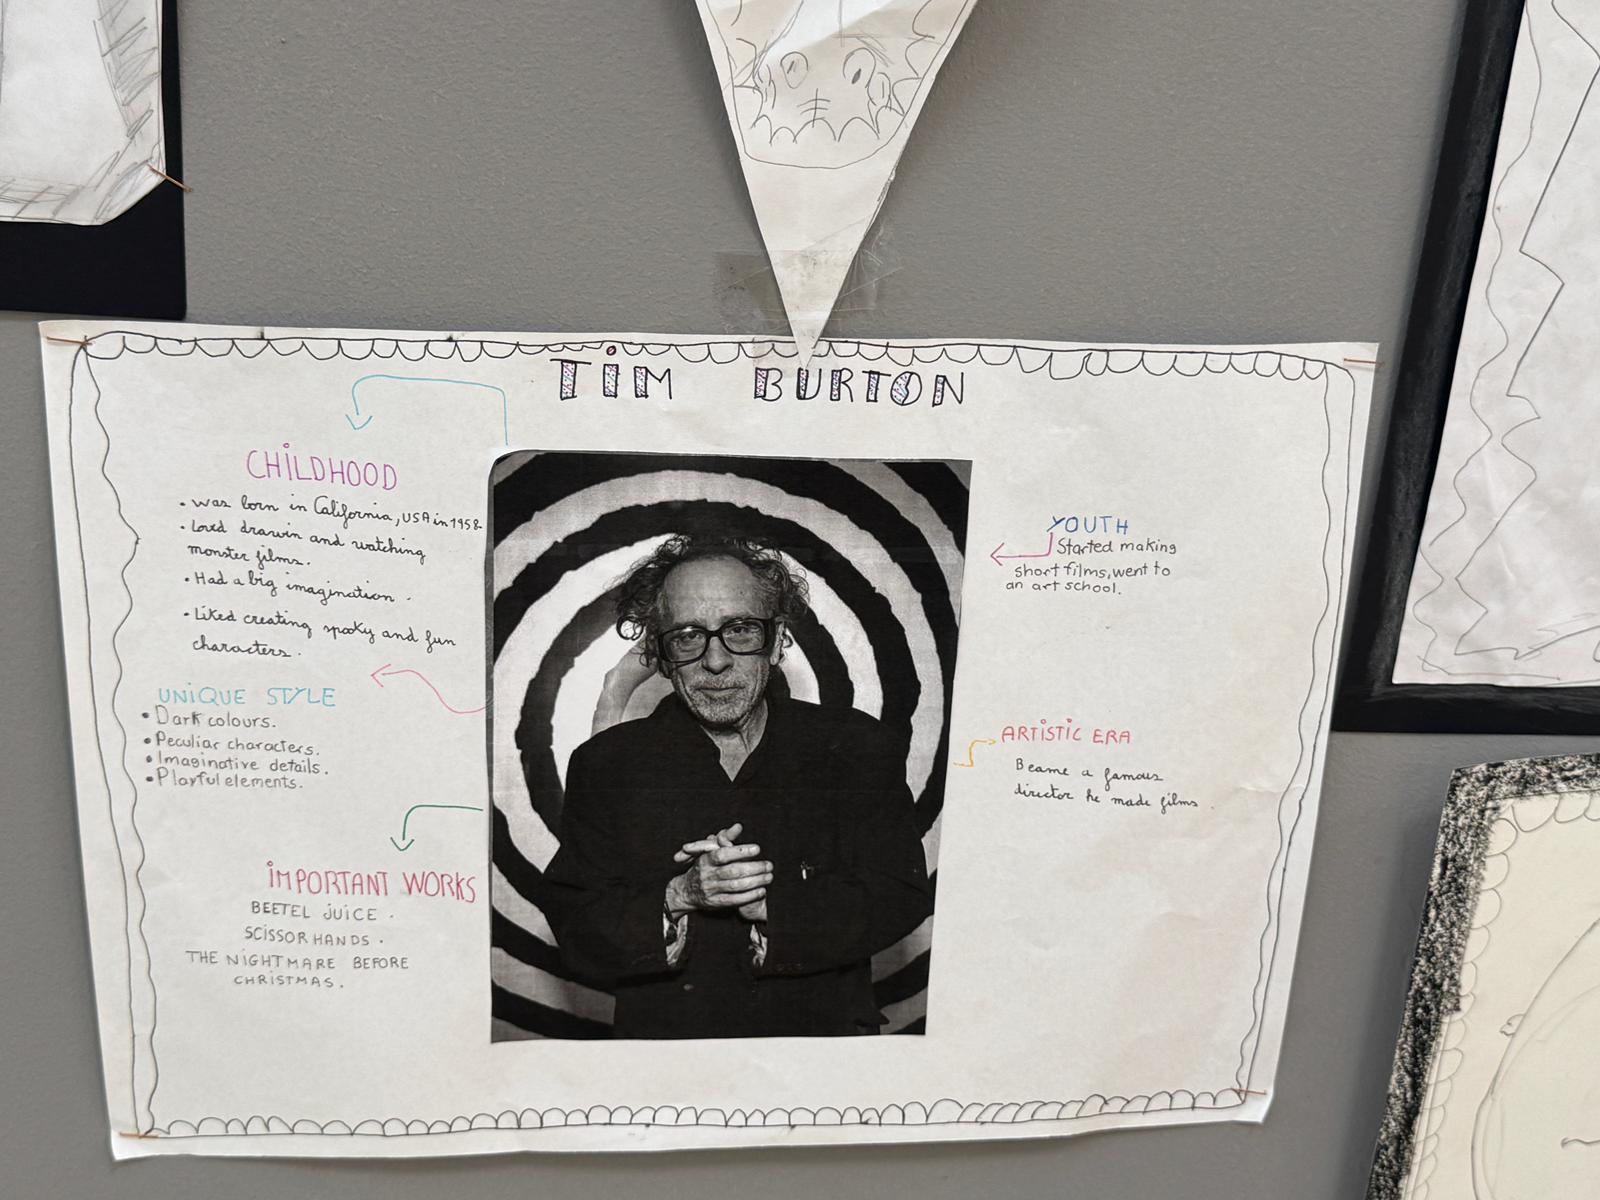 TiM BURTON
CHiLDHOOD
• was born in California, USA in 1958-
• Loved drawin and watching
monster films.
• Had a big imagination.
• Liked creating spooky and fun
characters.
UNiQUE STYLE
• Dark colours.
• Peculiar characters.
• Imaginative details.
• Playful elements.
iMPORTANT WORKS
BEETEL JUICE.
SCISSORHANDS.
THE NIGHTMARE BEFORE
CHRISTMAS.
YOUTH
Started making
short films, went to
an art school.
ARTiSTiC ERA
Became a famous
director he made films.